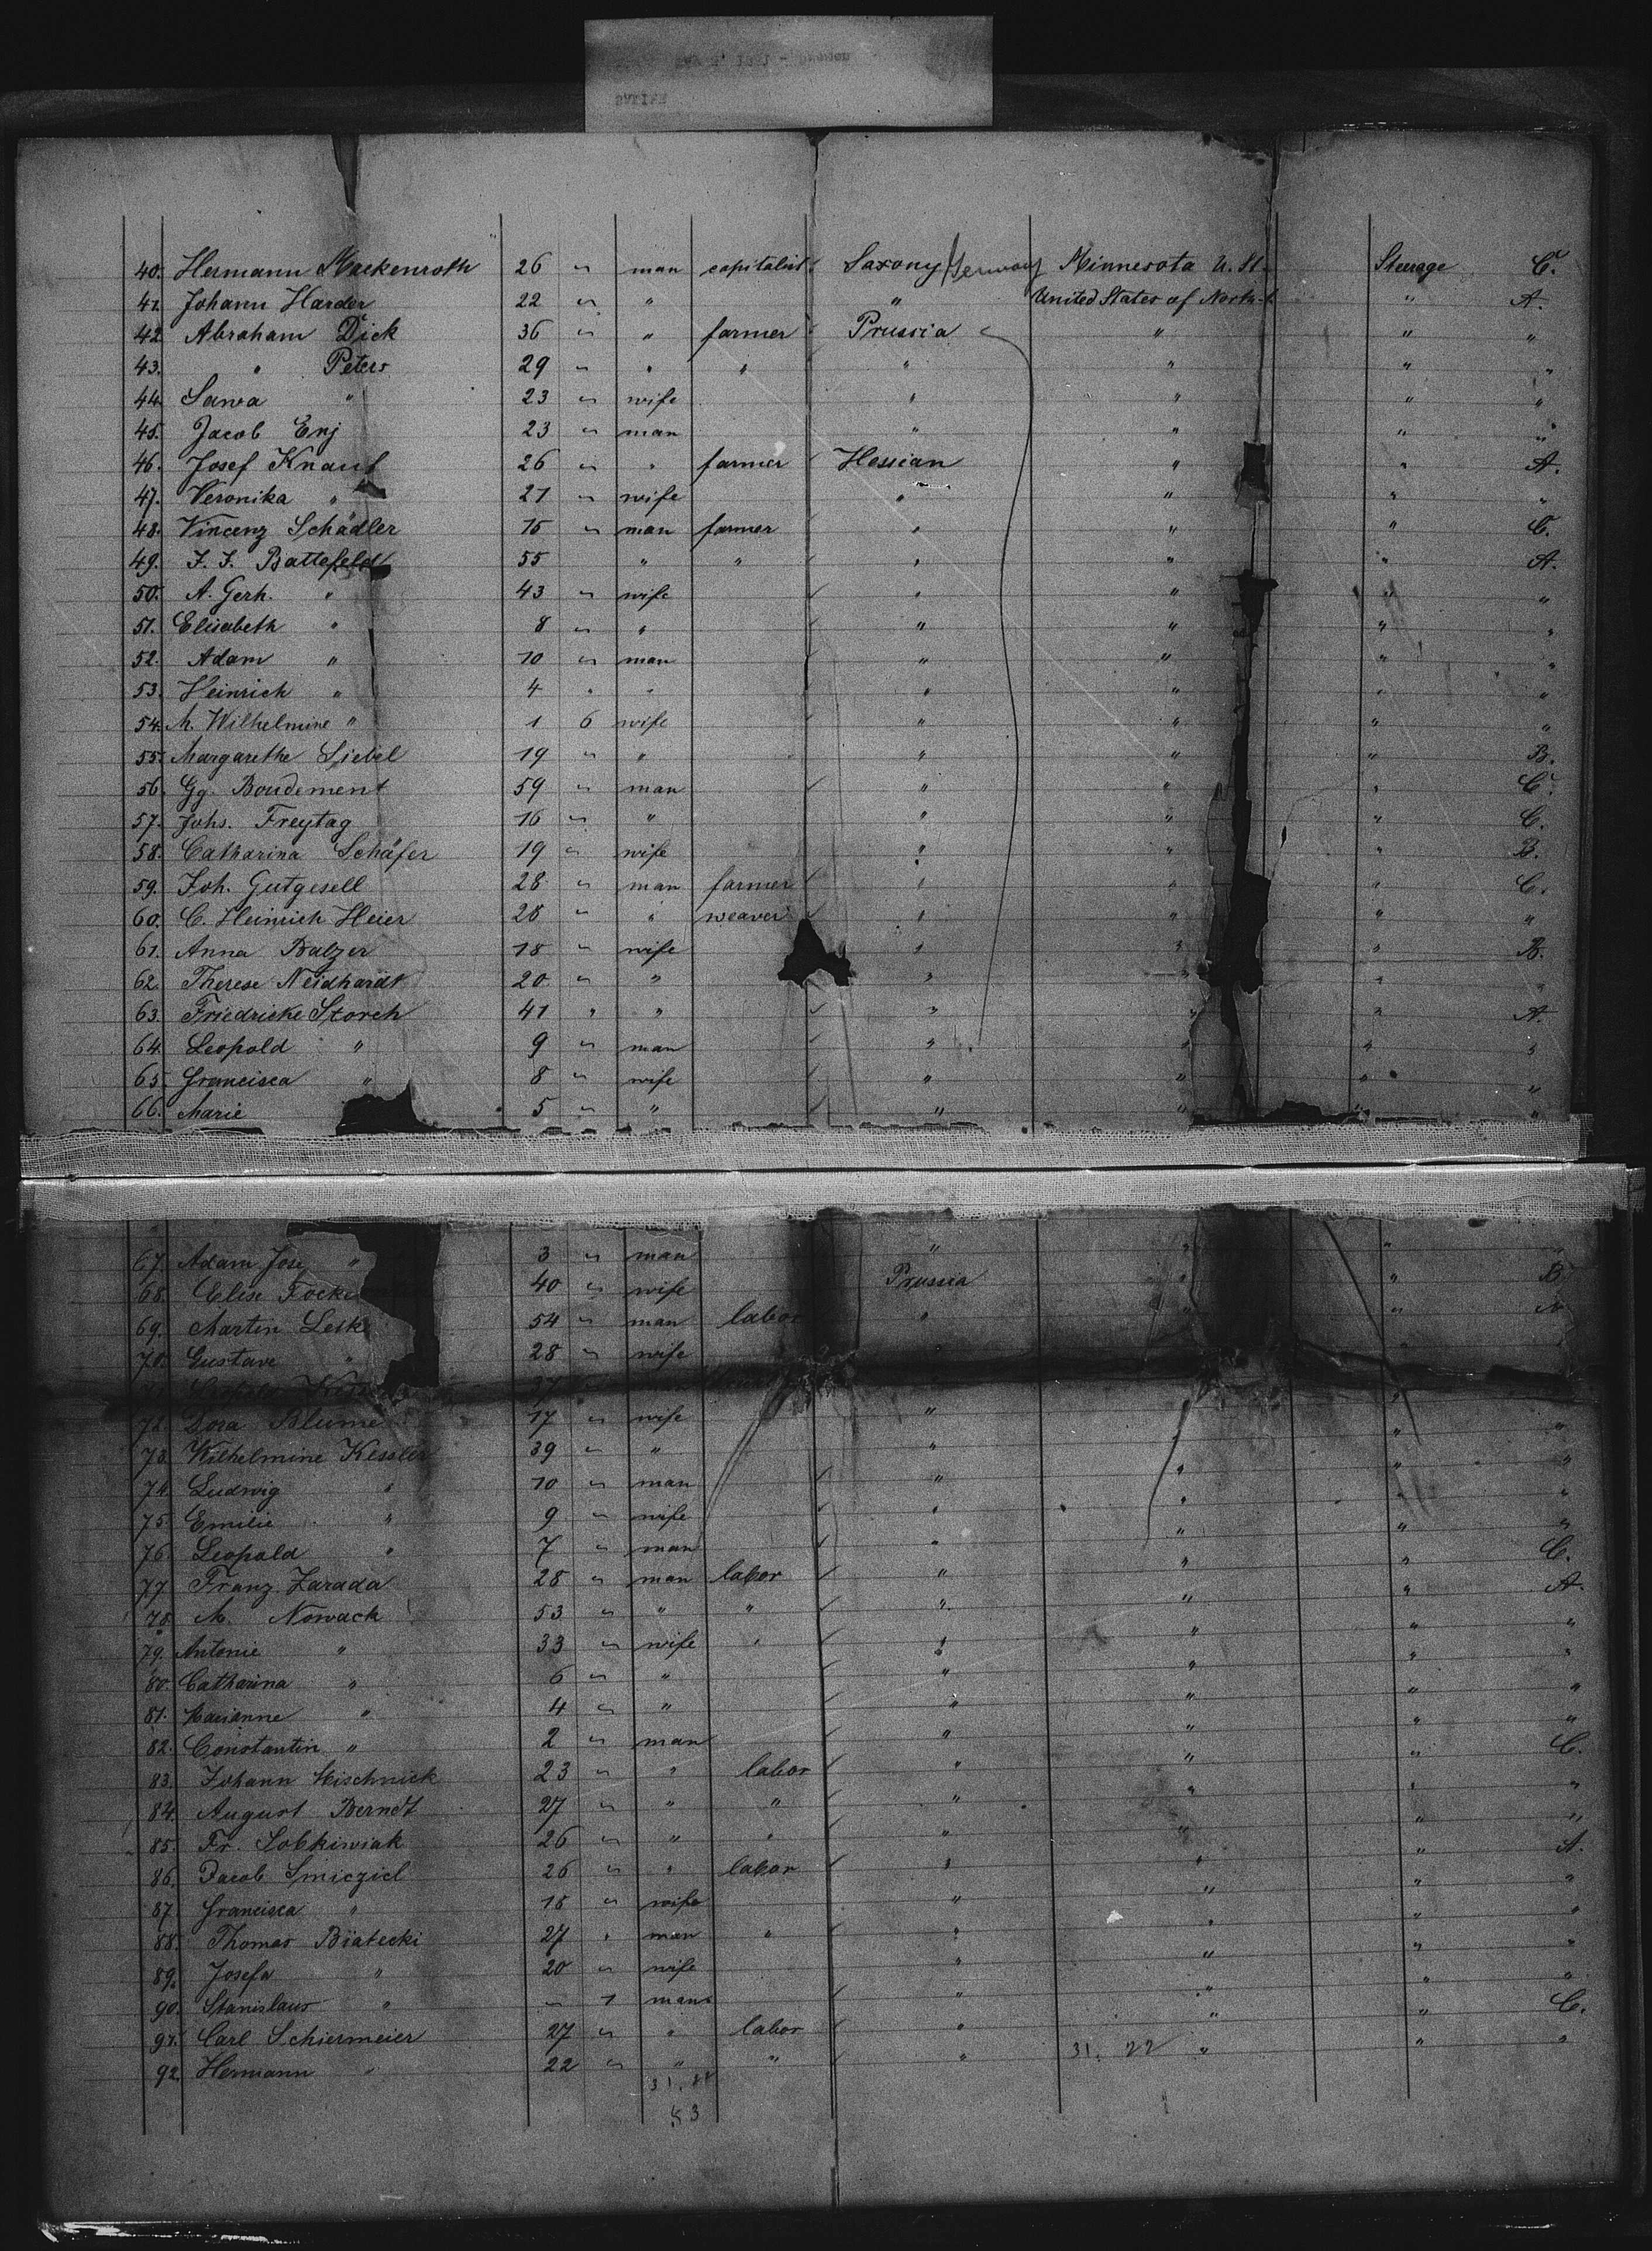 40. Hermann Mackenroth 26 " man capitalist Saxony Germany Minnesota U. St. Steerage C.
41. Johann Harder 22 " " " United States of North-A " A.
42 Abraham Dick 36 " " farmer Prussia " " "
43. " Peters 29 " " " " " " "
44. Sawa " 23 " wife " " " "
45. Jacob Enj 23 " man " " " "
46. Josef Knauf 26 " " farmer Hessian " " A.
47. Veronika " 21 " wife " " " "
48. Vincenz Schädler 15 " man farmer " " " C.
49. J. J. Battefeld 55 " " " " " A.
50. A. Gerh. " 43 " wife " " " "
51. Elisabeth " 8 " " " " " "
52. Adam " 10 " man " " " "
53. Heinrich " 4 " " " " " "
54. M. Wilhelmine " 1 6 wife " " " "
55. Margarethe Liebel 19 " " " " " B.
56. Gg. Boudement 59 " man " " " C.
57. Johs. Freytag 16 " " " " " C.
58. Catharina Schäfer 19 " wife " " " B.
59. Joh. Gutgesell 28 " man farmer " " " C.
60. C. Heinrich Heier 28 " " weaver " " " "
61. Anna Balzer 18 " wife " " " B.
62. Therese Neidhardt 20 " " " " " "
63. Friedricke Storch 41 " " " " " A.
64. Leopold " 9 " man " " " "
65. Francisca " 8 " wife " " " "
66. Marie 5 " " " " " "
67. Adam Jose " 3 " man " " " "
68. Elise Focke 40 " wife Prussia " " B
69. Martin Leske 54 " man labor " " " A
70. Gustave " 28 " wife
37
72. Dora Blume 17 " wife " " "
73. Wilhelmine Kessler 39 " " " " " "
74. Ludwig " 10 " man " " " "
75. Emilie " 9 " wife " " " "
76. Leopold " 7 " man " " " "
77. Franz Zarada 28 " man labor " " " C.
78. M. Nowack 53 " " " " " " A.
79. Antonie " 33 " wife " " " " "
80. Catharina " 6 " " " " " "
81. Marianne " 4 " " " " " "
82. Constantin " 2 " man " " " "
83. Johann Mischnick 23 " " labor " " " C.
84. August Berndt 27 " " " " " " "
85. Fr. Sobkiwiak 26 " " " " " " "
86. Jacob Smiczicl 26 " " labor " " " A.
87. Francisca " 18 " wife " " " "
88. Thomas Biatecki 27 " man " " " " "
89. Josefa " 20 " wife " " " "
90. Stanislaus " " 1 man " " " "
91. Carl Schiermeier 27 " " labor " " " C.
92. Hermann " 22 " " " " 31. 22 " " "
31. 22
53